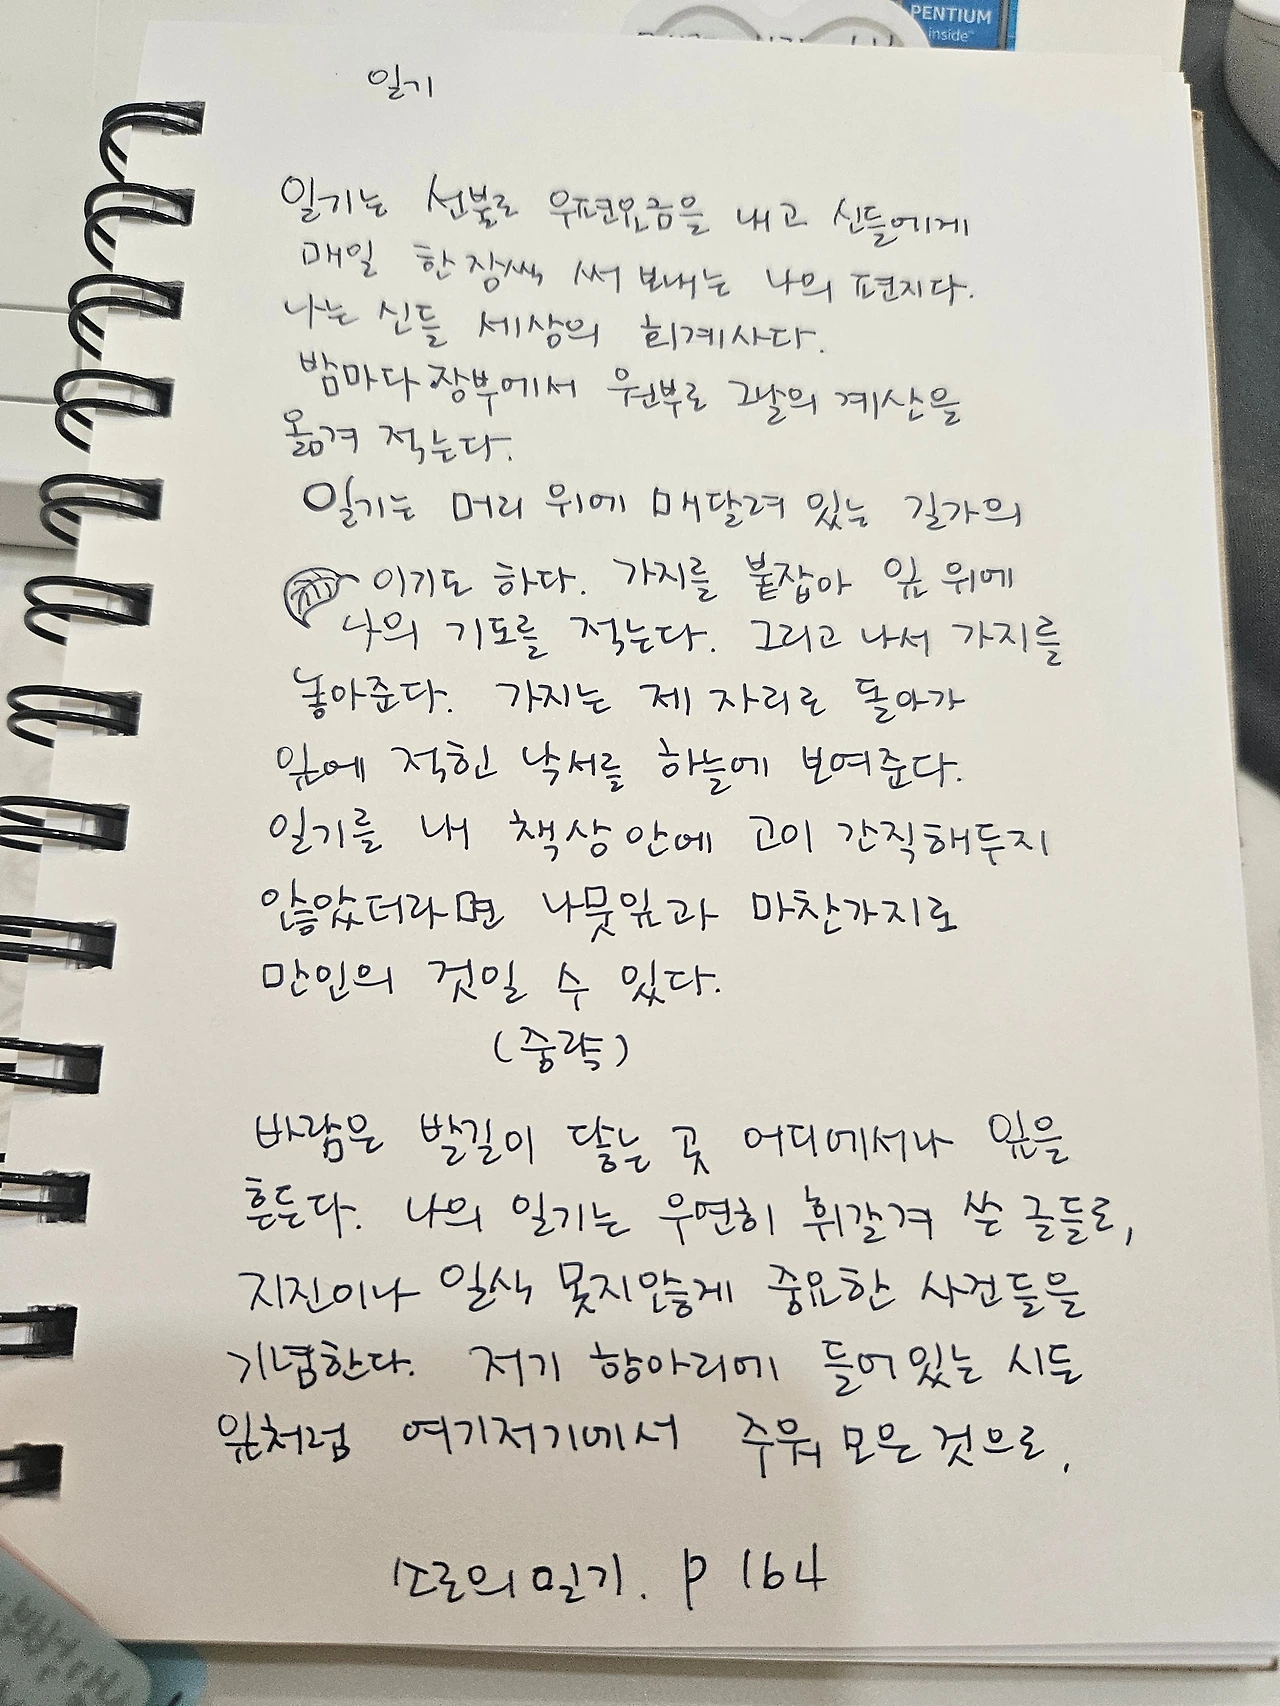 PENTIUM
inside™
일기
일기는 선불로 우편요금을 내고 신들에게
매일 한장씩 써 보내는 나의 편지다.
나는 신들 세상의 회계사다.
밤마다 장부에서 원부로 그날의 계산을
옮겨 적는다.
일기는 머리 위에 매달려 있는 길가의
이기도 하다. 가지를 붙잡아 잎 위에
나의 기도를 적는다. 그리고 나서 가지를
놓아준다. 가지는 제 자리로 돌아가
잎에 적힌 낙서를 하늘에 보여준다.
일기를 내 책상 안에 고이 간직해두지
않았더라면 나뭇잎과 마찬가지로
만인의 것일 수 있다.
(중략)
바람은 발길이 닿는 곳 어디에서나 잎을
흔든다. 나의 일기는 우연히 휘갈겨 쓴 글들로,
지진이나 일식 못지않게 중요한 사건들을
기념한다. 저기 항아리에 들어있는 시든
잎처럼 여기저기에서 주워 모은 것으로,
소로의 일기. p 164